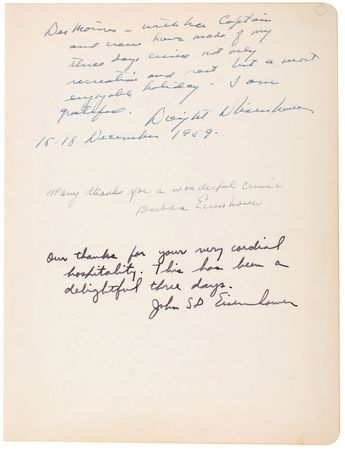 Des Moines - with her Captain
and crew have made of my
three days cruise not only
recreation and rest but a most
enjoyable holiday. I am
grateful. Dwight D Eisenhower
15-18 December 1959.
Many thanks for a wonderful cruise
Barbara Eisenhower
Our thanks for your very cordial
hospitality. This has been a
delightful three days.
John SD Eisenhower